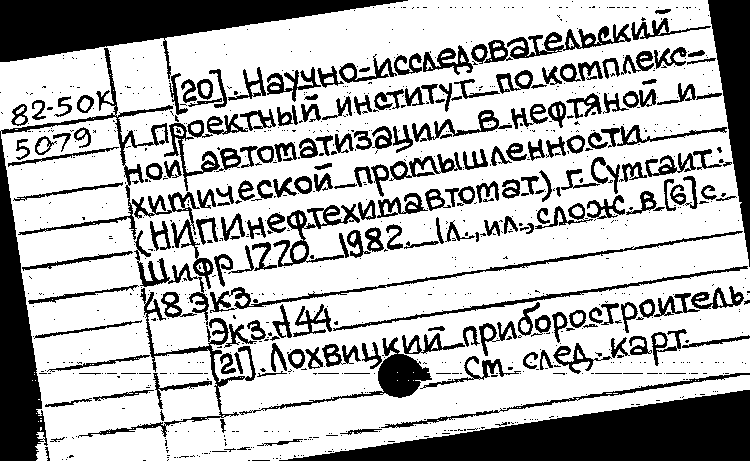 82-50К
5079
[20]. Научно-исследовательский
и проектный институт по комплекс-
ной автоматизации в нефтяной и
химической промышленности.
(НИПИнефтехимавтомат), г. Сумгаит:
Шифр 1770. 1982. 1л., ил., слож. в [6] с.
48 экз.
Экз. 144.
[21]. Лохвицкий приборостроитель:
См. след. карт.